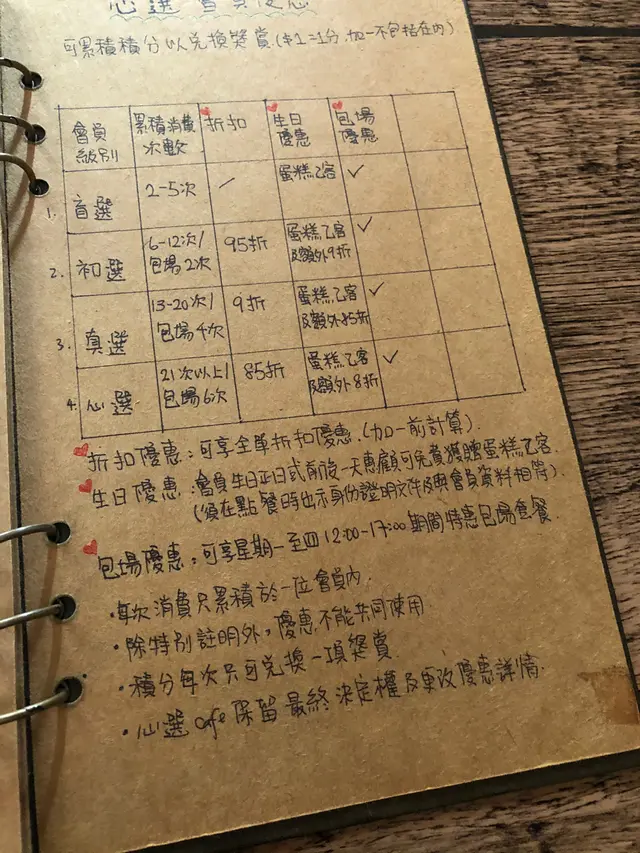 心選 會員優惠
可累積積分以兌換獎賞($1=1分,加一不包括在內)
會員級別 累積消費次數 折扣 生日優惠 包場優惠
1. 首選 2-5次 / 蛋糕乙客 ✓
2. 初選 6-12次/包場2次 95折 蛋糕乙客及額外9折 ✓
3. 真選 13-20次/包場4次 9折 蛋糕乙客及額外85折 ✓
4. 心選 21次以上/包場6次 85折 蛋糕乙客及額外8折 ✓
折扣優惠:可享全單折扣優惠.(加一前計算).
生日優惠:會員生日正日或前後一天惠顧可免費獲贈蛋糕乙客.
(須在點餐時出示身份證明文件及與會員資料相符).
包場優惠:可享星期一至四12:00-17:00期間特惠包場套餐.
·每次消費只累積於一位會員內.
·除特別註明外,優惠不能共同使用.
·積分每次只可兌換一項獎賞.
·心選cafe保留最終決定權及更改優惠詳情.